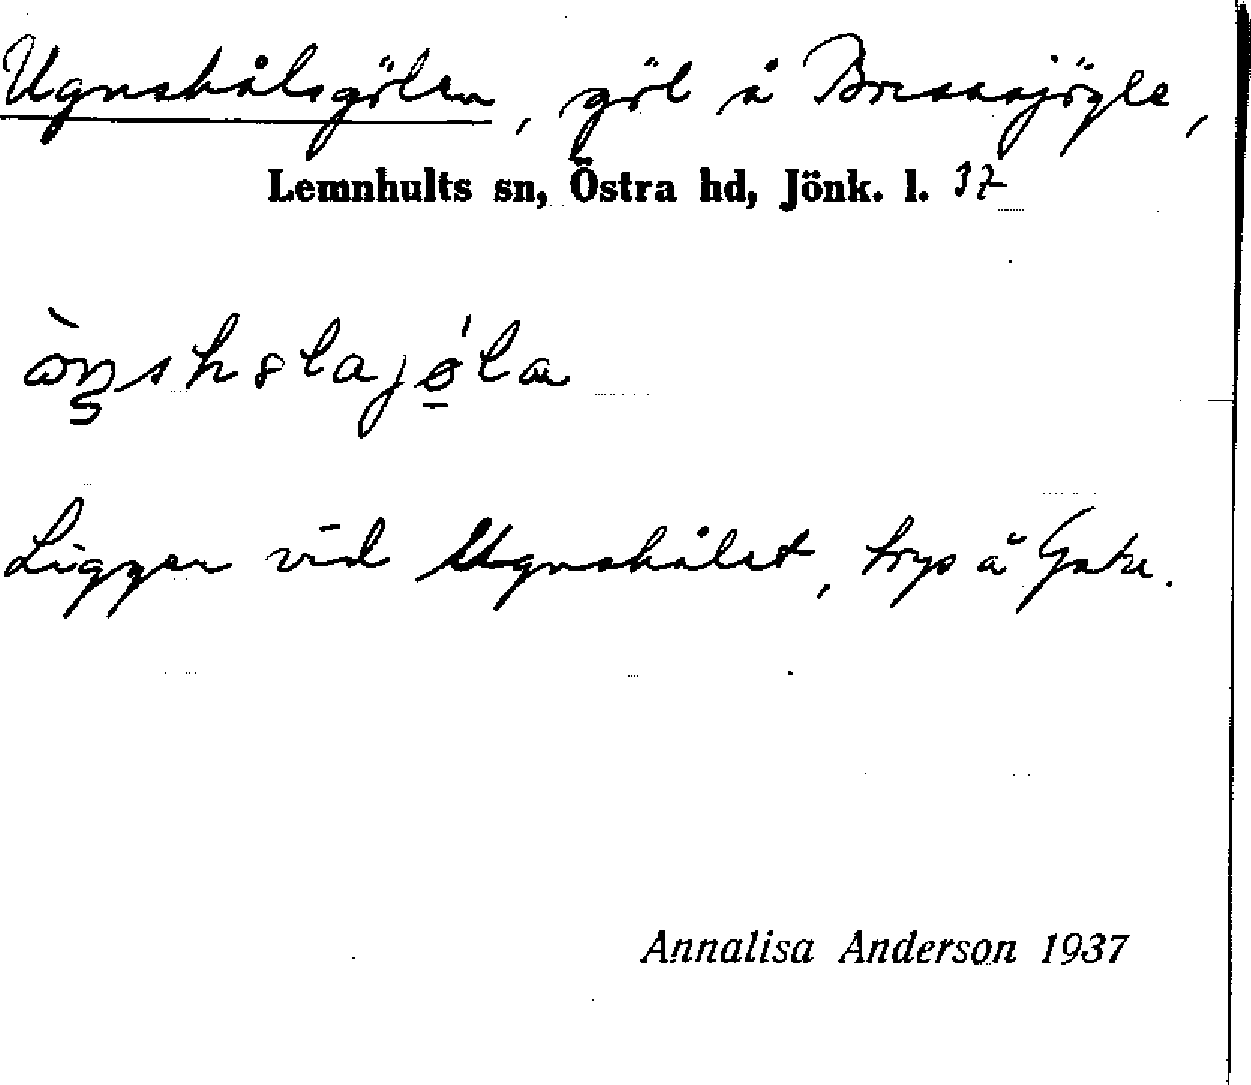 Ugnshålsgölen, göl å Bressajögle,
Lemnhults sn, Östra hd, Jönk. l. 37
Ligger vid Ugnshålet, torp å Gate.
Annalisa Anderson 1937